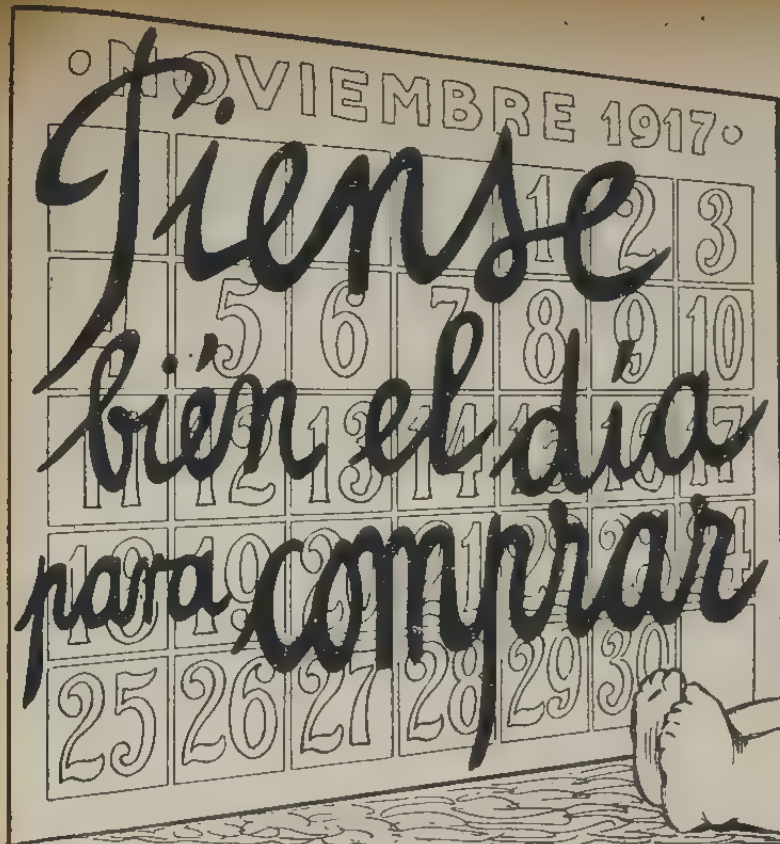 ·NOVIEMBRE 1917·
Piense
bién el día
para comprar
1 2 3
4 5 6 7 8 9 10
11 12 13 14 15 16 17
18 19 20 21 22 23 24
25 26 27 28 29 30